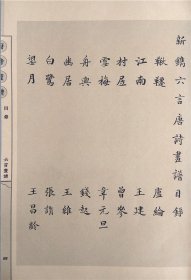 新鐫六言唐詩畫譜目錄
鞦韆 盧綸
江南 王建
村居 曾參
雪梅 韋元旦
舟興 錢起
幽居 王維
白鷺 張謂
望月 王昌齡
目錄
六言畫譜